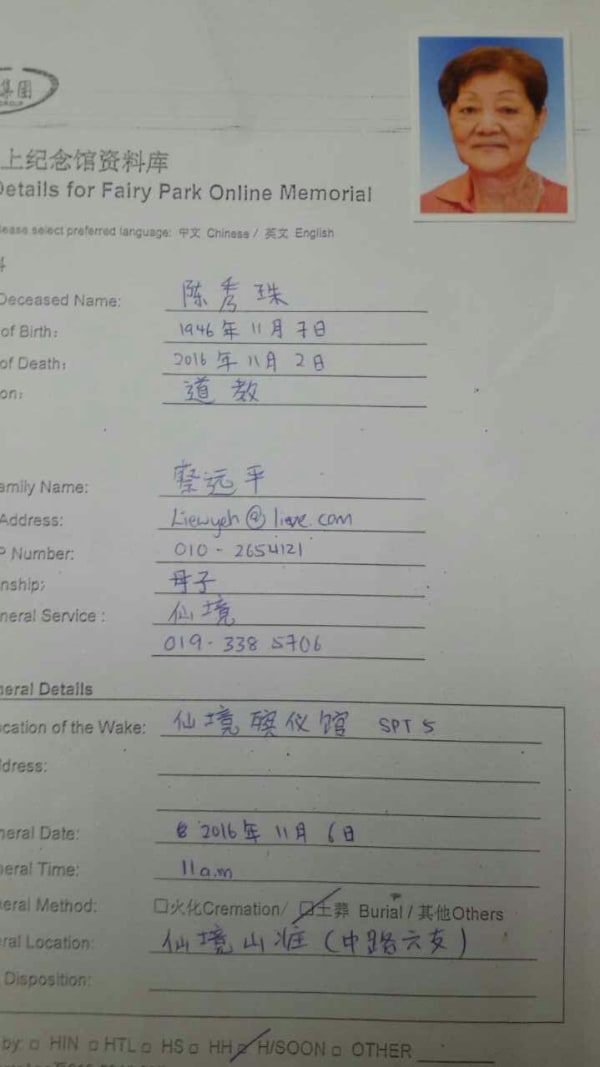 集團
GROUP
上纪念馆资料库
Details for Fairy Park Online Memorial
lease select preferred language: 中文 Chinese / 英文 English
料
Deceased Name: 陈秀珠
of Birth: 1946年11月7日
of Death: 2016年11月2日
on: 道教
amily Name: 蔡远平
Address: Liewyeh@live.com
P Number: 010-2654121
nship: 母子
neral Service : 仙境
019-338 5706
neral Details
ocation of the Wake: 仙境殡仪馆 SPT 5
ddress:
neral Date: 2016年11月6日
neral Time: 11a.m
neral Method: □火化Cremation/ □土葬 Burial / 其他Others
ral Location: 仙境山庄(中路六支)
Disposition:
by: □ HIN □ HTL □ HS □ HH □ H/SOON □ OTHER